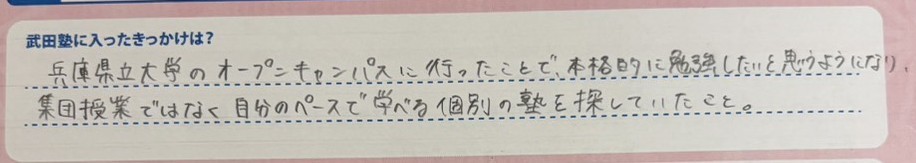 武田塾に入ったきっかけは?
兵庫県立大学のオープンキャンパスに行ったことで、本格的に勉強したいと思うようになり、
集団授業ではなく自分のペースで学べる個別の塾を探していたこと。